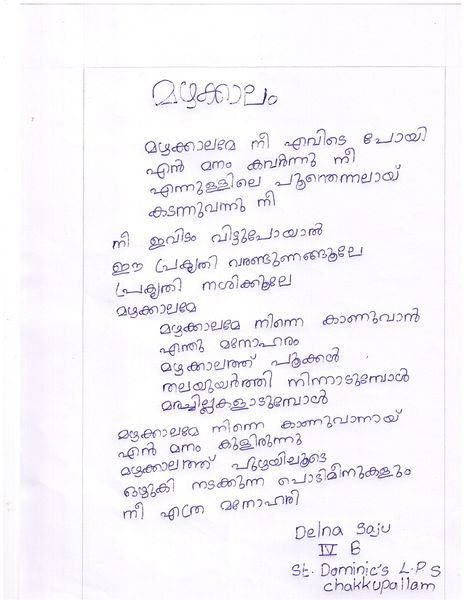 മഴക്കാലം
മഴക്കാലമേ നീ എവിടെ പോയി
എൻ മനം കവർന്നു നീ
എന്നുള്ളിലെ പൂന്തെന്നലായ്
കടന്നുവന്നു നീ
നീ ഇവിടം വിട്ടുപോയാൽ
ഈ പ്രകൃതി വരണ്ടുണങ്ങൂലേ
പ്രകൃതി നശിക്കൂലേ
മഴക്കാലമേ
മഴക്കാലമേ നിന്നെ കാണുവാൻ
എന്തു മനോഹരം
മഴക്കാലത്ത് പൂക്കൾ
തലയുയർത്തി നിന്നാടുമ്പോൾ
മരച്ചില്ലകളാടുമ്പോൾ
മഴക്കാലമേ നിന്നെ കാണുവാനായ്
എൻ മനം കുളിരുന്നു
മഴക്കാലത്ത് പുഴയിലൂടെ
ഒഴുകി നടക്കുന്ന പൊടിമീനുകളും
നീ എത്ര മനോഹരി
Delna Saju
IV B
St. Dominic's L.P.S
Chakkupallam